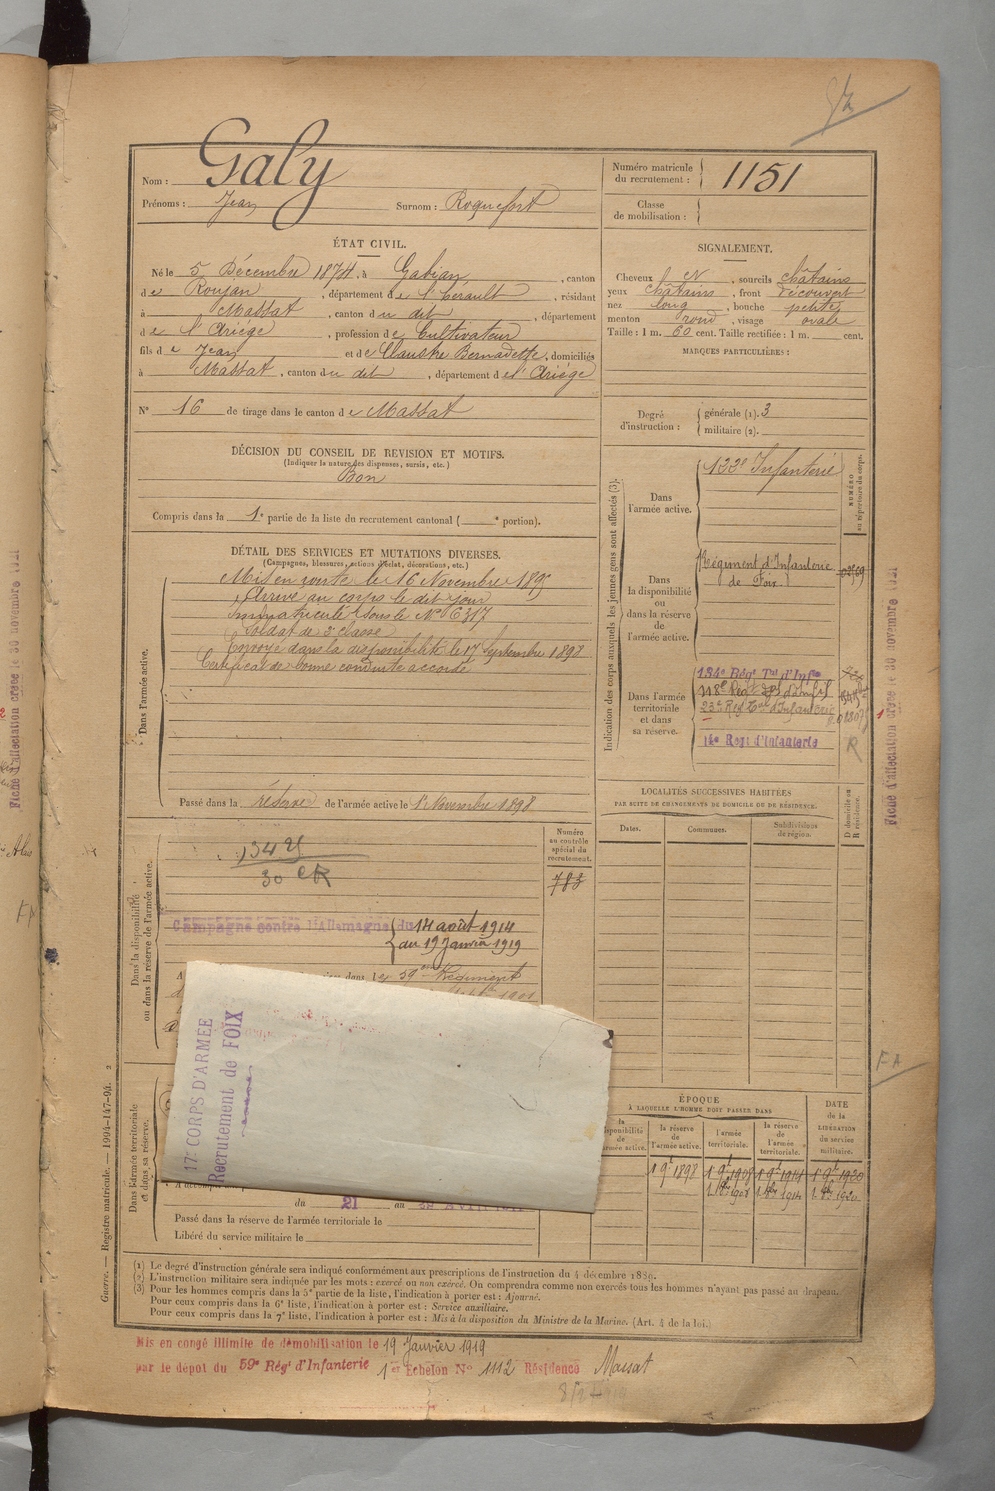 Galy
Nom :
Prénoms : Jean Surnom : Roquefort
Numéro matricule du recrutement : 1151
Classe de mobilisation :
ÉTAT CIVIL.
Né le 5 Décembre 1874, à Gabian, canton
de Roujan, département de l'Hérault, résidant
à Massat, canton du dit, département
de l'Ariège, profession de Cultivateur
fils de Jean et de Claustre Bernadette, domiciliés
à Massat, canton du dit, département de l'Ariège
N° 16 de tirage dans le canton de Massat
SIGNALEMENT.
Cheveux , sourcils châtains
yeux châtains, front découvert
nez long, bouche petite
menton rond, visage ovale
Taille : 1 m. 60 cent. Taille rectifiée : 1 m. cent.
MARQUES PARTICULIÈRES :
Degré d'instruction : générale (1). 3
militaire (2).
DÉCISION DU CONSEIL DE REVISION ET MOTIFS.
(Indiquer la nature des dispenses, sursis, etc.)
Bon
Compris dans la 1e partie de la liste du recrutement cantonal ( e portion).
DÉTAIL DES SERVICES ET MUTATIONS DIVERSES.
(Campagnes, blessures, actions d'éclat, décorations, etc.)
Dans l'armée active.
Mis en route le 16 Novembre 1895
Arrivé au corps le dit jour
Immatriculé sous le N° 6317
Soldat de 2e classe
Envoyé dans la disponibilité le 17 Septembre 1898
Certificat de bonne conduite accordé
Passé dans la réserve de l'armée active le 1er Novembre 1898
Indication des corps auxquels les jeunes gens sont affectés (3).
NUMÉRO au répertoire du corps.
Dans l'armée active.
133e Infanterie
Dans la disponibilité ou dans la réserve de l'armée active.
Régiment d'Infanterie
de Foix
Dans l'armée territoriale et dans sa réserve.
134e Régt Tal d'Infie
118e Régt
23e Rég Tal d'Infanterie
14e Regt d'Infanterie
R
Fiche d'affectation créée le 30 novembre 1921
LOCALITÉS SUCCESSIVES HABITÉES
PAR SUITE DE CHANGEMENTS DE DOMICILE OU DE RÉSIDENCE.
Dates. Communes. Subdivisions de région. D domicile ou R résidence.
Dans la disponibilité ou dans la réserve de l'armée active.
Numéro au contrôle spécial du recrutement.
783
Campagne contre l'Allemagne du 14 août 1914
au 19 Janvier 1919
59e Régiment
17e CORPS D'ARMÉE
Recrutement de FOIX
FA
Dans l'armée territoriale et dans sa réserve.
ÉPOQUE
À LAQUELLE L'HOMME DOIT PASSER DANS
la disponibilité de l'armée active. la réserve de l'armée active. l'armée territoriale. la réserve de l'armée territoriale.
DATE de la LIBÉRATION du service militaire.
1 9bre 1898 1 9bre 1908 1 9bre 1914 1 9bre 1920
du 21 au
Passé dans la réserve de l'armée territoriale le
Libéré du service militaire le
Guerre. — Registre matricule. — 1994-147-94. 2
(1) Le degré d'instruction générale sera indiqué conformément aux prescriptions de l'instruction du 4 décembre 1889.
(2) L'instruction militaire sera indiquée par les mots : exercé ou non exercé. On comprendra comme non exercés tous les hommes n'ayant pas passé au drapeau.
(3) Pour les hommes compris dans la 5e partie de la liste, l'indication à porter est : Ajourné.
Pour ceux compris dans la 6e liste, l'indication à porter est : Service auxiliaire.
Pour ceux compris dans la 7e liste, l'indication à porter est : Mis à la disposition du Ministre de la Marine. (Art. 4 de la loi.)
Mis en congé illimité de démobilisation le 19 Janvier 1919
par le dépôt du 59e Régt d'Infanterie 1er Echelon N° 1112 Résidence Massat